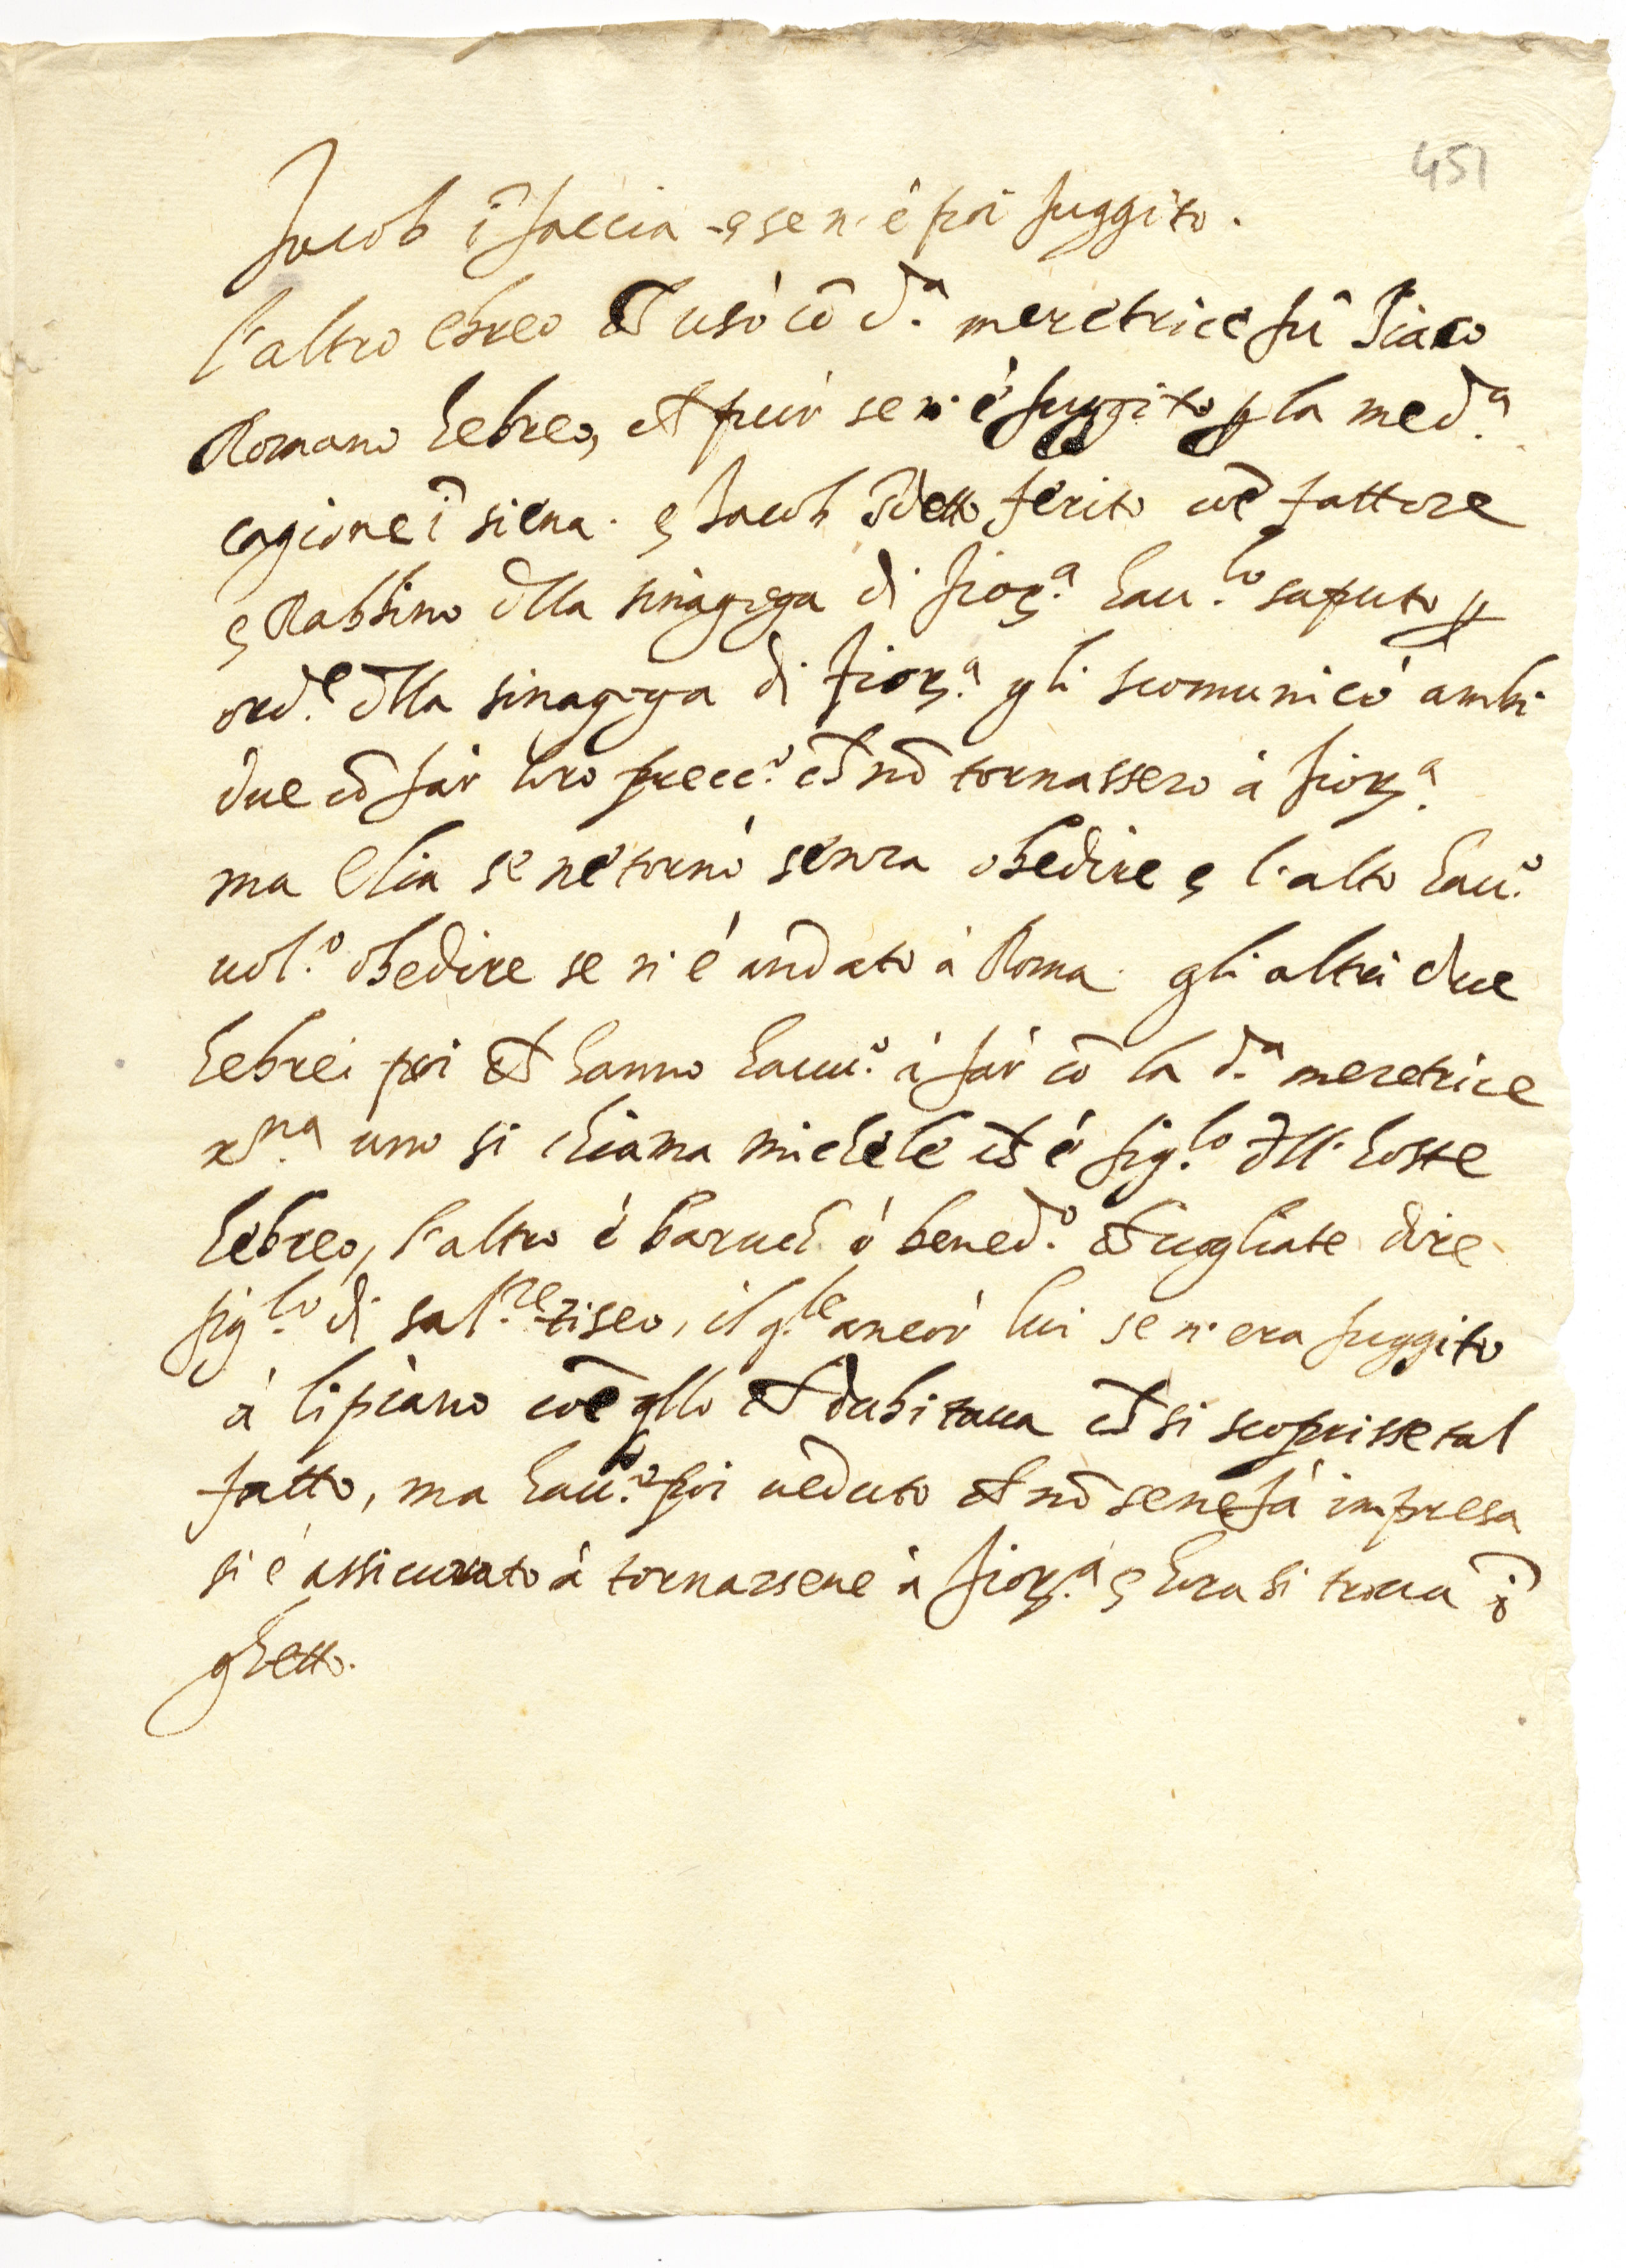 451
Jacob ī faccia e se n'è poi fuggito.
l'altro ebreo ch̄ usò cō d.ᵃ meretrice fù
Romano hebreo, ch̄ pur se n'è fuggito ꝑ la med.ᵃ
cagione ī siena. e Jacob sd̄etto ferito com̄e fattore
e Rabbino d̄lla sinagoga di fior.ᵃ hau.ˡᵒ saputo ꝑ
ord.ᵉ d̄lla sinagoga di fiorz.ᵃ gli scomunicò ambi
due cō far loro precc.ᵒ ch̄ nō tornassero à fiorz.ᵃ
ma Elia se ne tornò senza obedire e l'alto hau.ᵒ
uol.ᵒ obedire se n'è andato à Roma. gli altri due
hebrei poi ch̄ hanno hauu.ᵒ à far cō la d.ᵃ meretrice
xp̄.ⁿᵃ uno si chiama michele ch̄ è fig.ˡᵒ d̄ll'hoste
hebreo, l'altro è baruch ò bened.ᵒ ch̄ uogliate dire
fig.ˡᵒ di sal.ʳᵉ tiseo, il q.ˡᵉ ancor lui se n'era fuggito
à lipiano com̄e q̄llo ch̄ dubitaua ch̄ si scoprisse tal
fatto, ma hau.ᵒ poi ueduto ch̄ nō se ne fà impresa
si è assicurato à tornarsene à fiorz.ᵃ e hora si troua ī
ghetto.